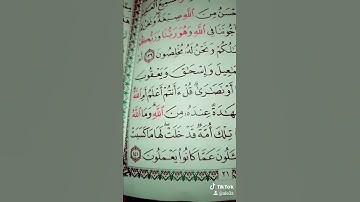 حْسَنُ مِنَ ٱللَّهِ صِبْغَةً وَنَحْنُ
جُّونَنَا فِي ٱللَّهِ وَهُوَ رَبُّنَا وَرَبُّكُمْ
لُكُمْ وَنَحْنُ لَهُۥ مُخْلِصُونَ ١٣٩
مَٰعِيلَ وَإِسْحَٰقَ وَيَعْقُوبَ
أَوْ نَصَٰرَىٰ قُلْ ءَأَنتُمْ أَعْلَمُ أَمِ ٱللَّهُ
شَهَٰدَةً عِندَهُۥ مِنَ ٱللَّهِ وَمَا ٱللَّهُ
تِلْكَ أُمَّةٌ قَدْ خَلَتْ لَهَا مَا كَسَبَتْ
ـَٔلُونَ عَمَّا كَانُوا۟ يَعْمَلُونَ ١٤١
٢١
TikTok